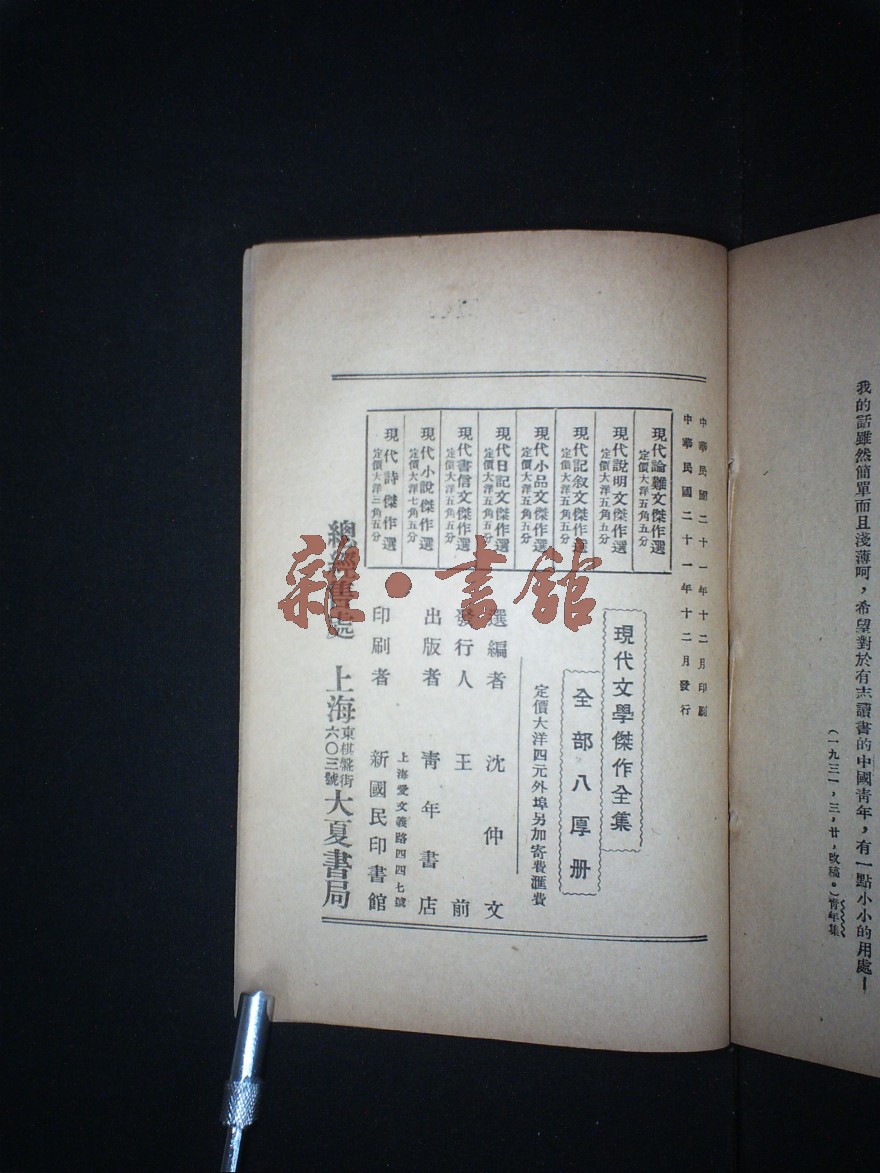 我的話雖然簡單而且淺薄呵，希望對於有志讀書的中國靑年，有一點小小的用處—
（一九三一，三，廿，改稿。）靑年集
中華民國二十一年十二月印刷
中華民國二十一年十二月發行
現代論難文傑作選
定價大洋五角五分
現代說明文傑作選
定價大洋五角五分
現代記叙文傑作選
定價大洋五角五分
現代小品文傑作選
定價大洋五角五分
現代日記文傑作選
定價大洋五角五分
現代書信文傑作選
定價大洋五角五分
現代小說傑作選
定價大洋七角五分
現代詩傑作選
定價大洋三角五分
現代文學傑作全集
全部八厚册
定價大洋四元外埠另加寄費滙費
選編者 沈仲文
發行人 王前
出版者 靑年書店
上海愛文義路四四七號
印刷者 新國民印書館
總經售處 上海東棋盤街六〇三號大夏書局
雜·書館